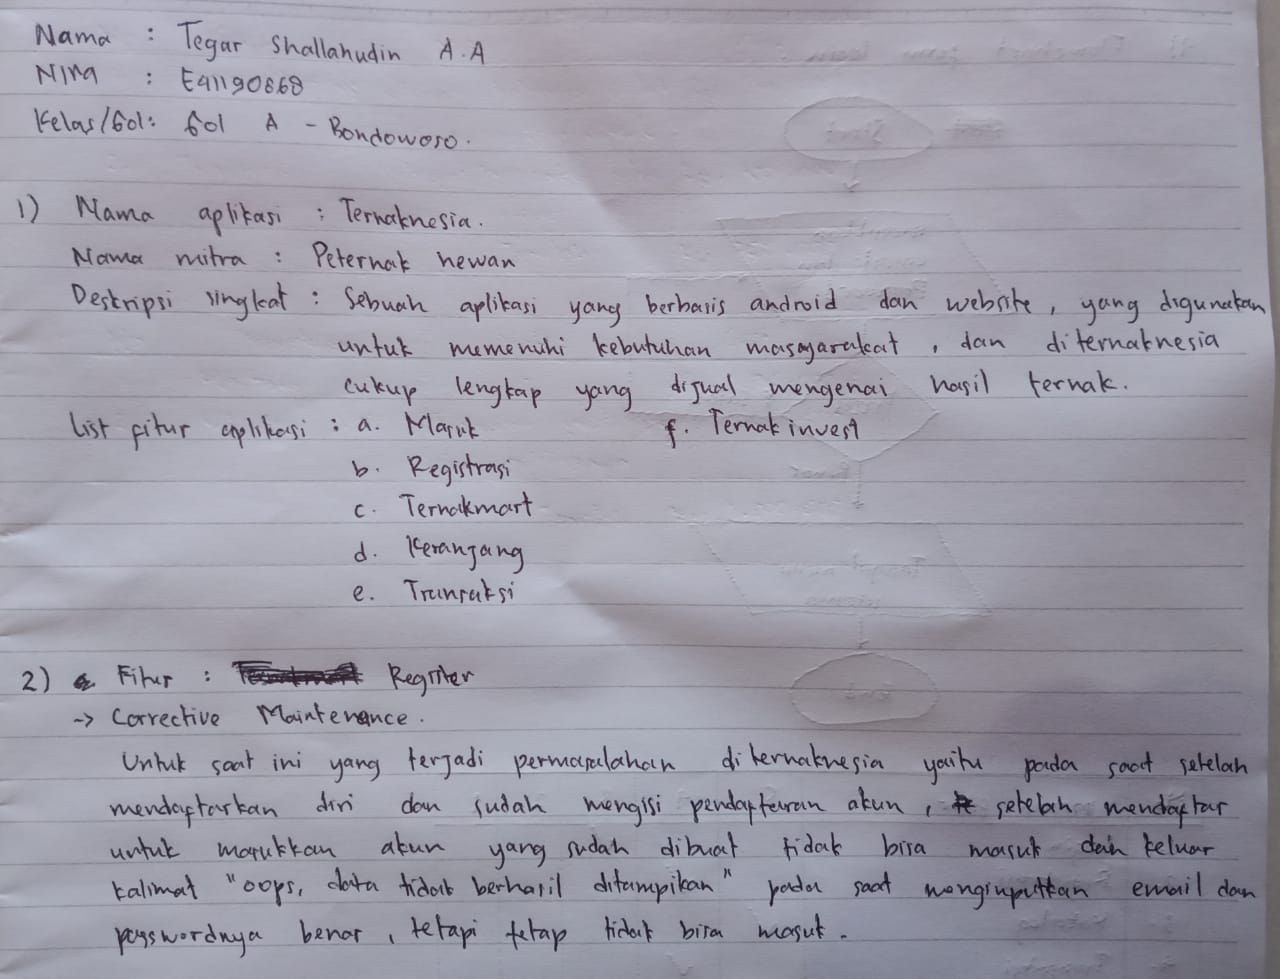 Nama : Tegar Shallahudin A.A
NIM : E41190868
Kelas/Gol: Gol A - Bondowoso.
1) Nama aplikasi : Ternaknesia.
Nama mitra : Peternak hewan
Deskripsi singkat : Sebuah aplikasi yang berbasis android dan website, yang digunakan
untuk memenuhi kebutuhan masyarakat, dan diternaknesia
cukup lengkap yang dijual mengenai hasil ternak.
List fitur aplikasi : a. Masuk f. Ternak invest
b. Registrasi
c. Ternakmart
d. Keranjang
e. Transaksi
2) Fitur : Register
-> Corrective Maintenance.
Untuk saat ini yang terjadi permasalahan diternaknesia yaitu pada saat setelah
mendaftarkan diri dan sudah mengisi pendaftaran akun, setelah mendaftar
untuk masukkan akun yang sudah dibuat tidak bisa masuk dan keluar
kalimat "oops, data tidak berhasil ditampikan" pada saat menginputkan email dan
passwordnya benar, tetapi tetap tidak bisa masuk.